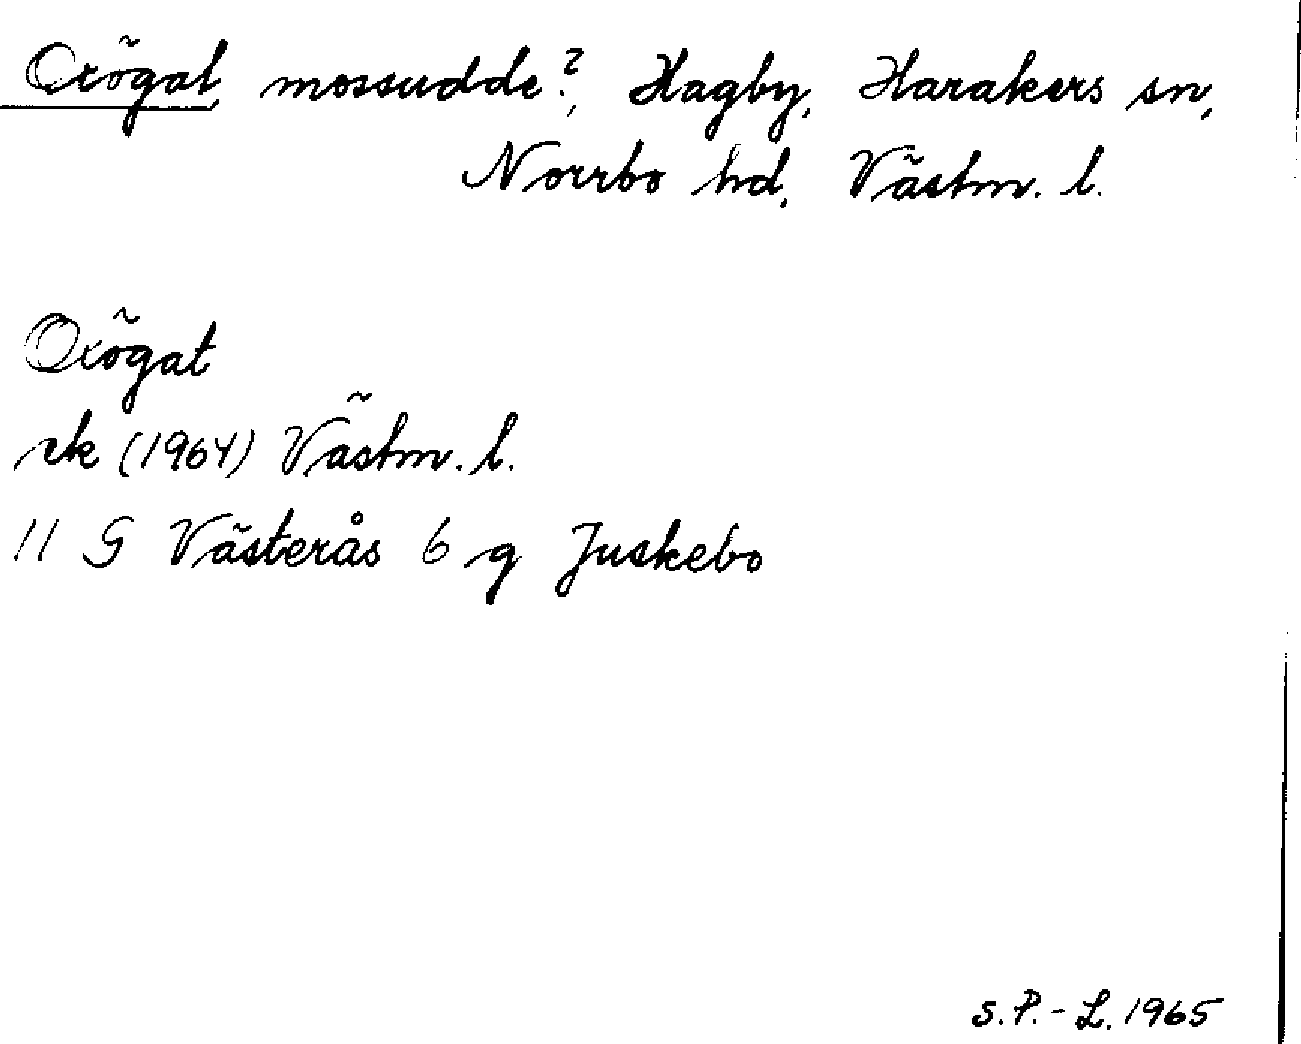 Oxögat, mossudde?, Hagby, Harakers sn,
Norrbo hd, Västm. l.
Oxögat
ek (1964) Västm. l.
11 G Västerås 6 g Juskebo
S.P.-L. 1965